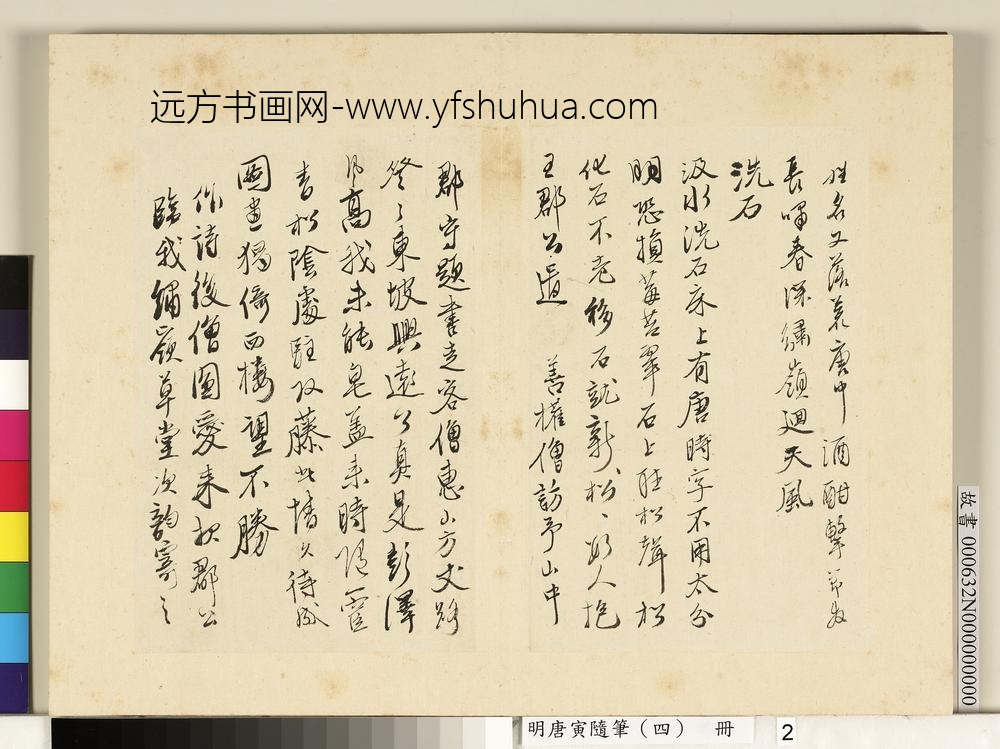 远方书画网-www.yfshuhua.com
姓名又落 庚申酒酣擊
長嘯春深繡嶺迴天風
洗石
汲水洗石床上有唐時字不用太分
明恐損莓苔翠石上聽松聲松
化石不老移石就新松松 人抱
王郡公遺 善權僧訪予山中
郡守題書走客僧惠山方丈路
登登東坡興遠公真是彭澤
風高我未能皂蓋來時
青松陰處駐 藤此情久待
圖畫獨倚西樓望不勝
作詩後僧圖愛來 郡公
臨我繡嶺草堂次韵寄之
故書 000632N000000000
明唐寅隨筆(四) 冊 2